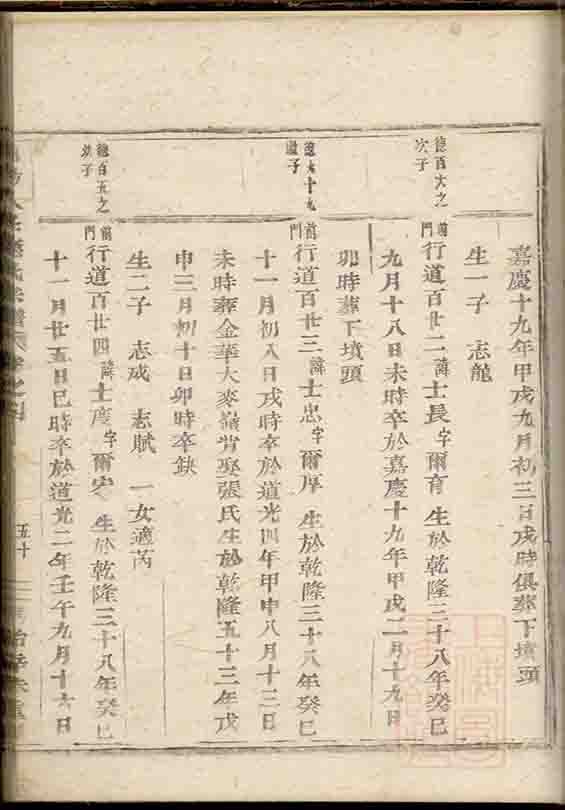 嘉慶十九年甲戌九月初三日戌時俱葬下墳頭
生一子 志龍
德百六之
次子
前門行道百廿二諱士長字爾育 生於乾隆三十八年癸巳
九月十八日未時卒於嘉慶十九年甲戌二月十九日
卯時葬下墳頭
前門行道百廿三諱士忠字爾厚 生於乾隆三十八年癸巳
十一月初八日戌時卒於道光四年甲申八月十三日
未時葬金華大麥嶺背娶張氏生於乾隆五十三年戊
申三月初十日卯時卒缺
生二子 志成 志賦 一女適芮
德百五之
次子
前門行道百廿四諱士度字爾安 生於乾隆三十八年癸巳
十一月廿五日巳時卒於道光二年壬午九月十六日
五十